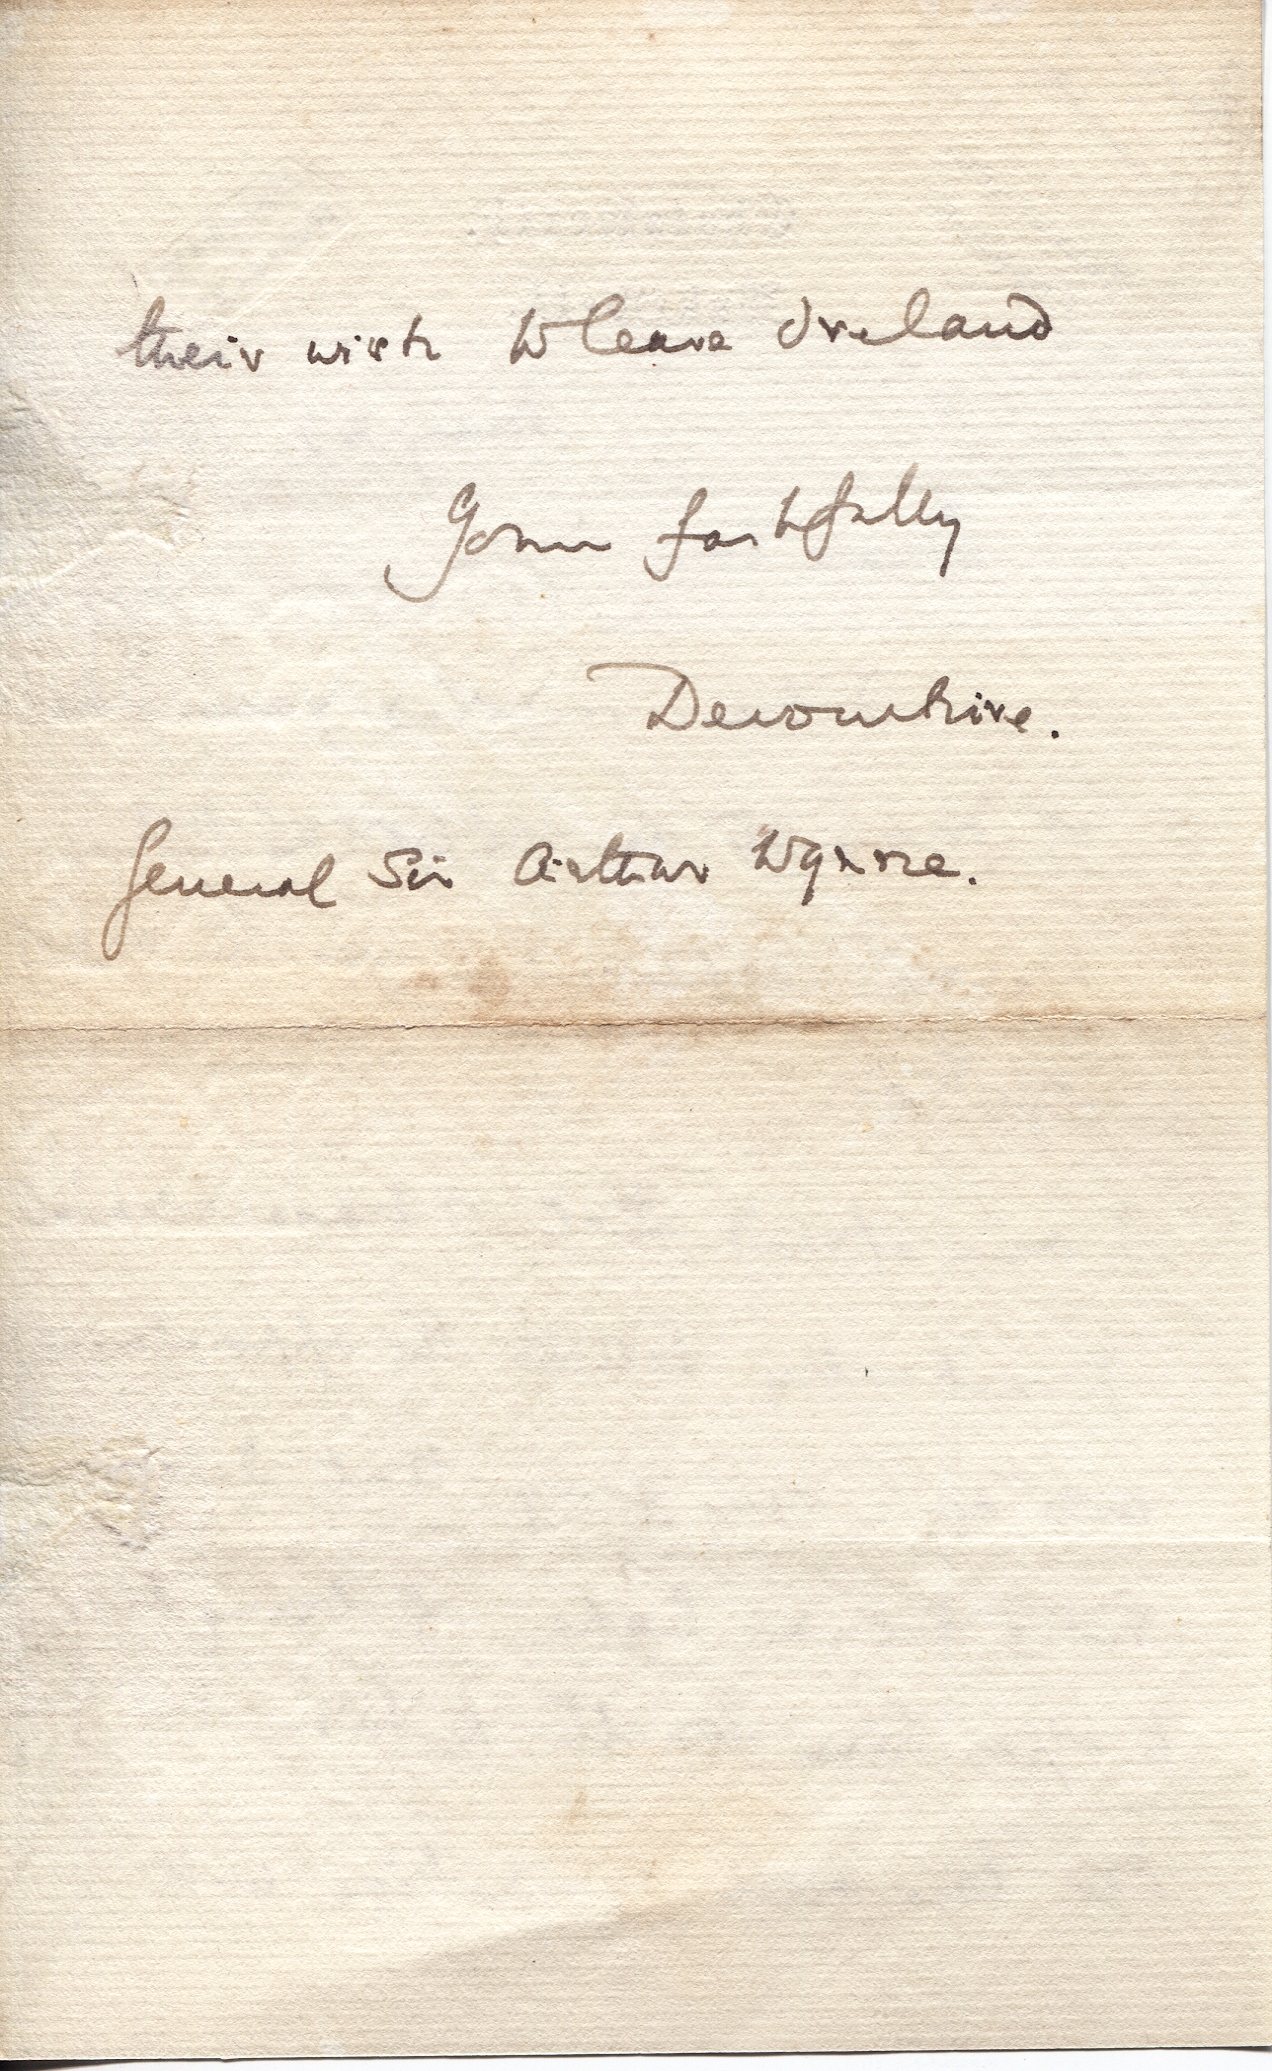 their wish to leave Ireland
Yours faithfully
Devonshire.
General Sir Arthur Wynne.